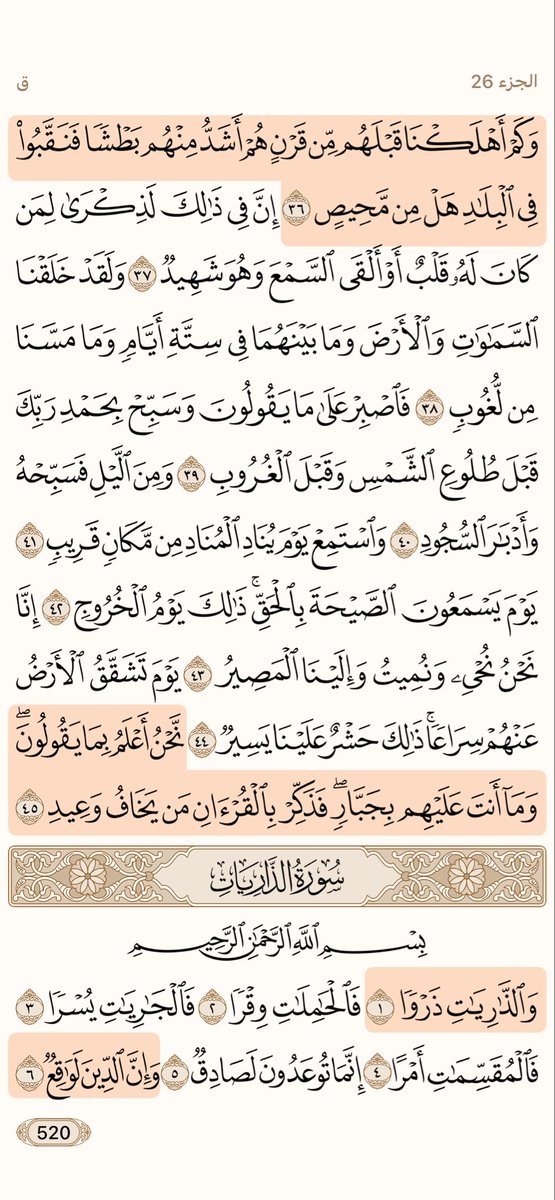 الجزء 26
ق
وَكَمْ أَهْلَكْنَا قَبْلَهُم مِّن قَرْنٍ هُمْ أَشَدُّ مِنْهُم بَطْشًا فَنَقَّبُوا۟
فِى ٱلْبِلَـٰدِ هَلْ مِن مَّحِيصٍ ٣٦ إِنَّ فِى ذَٰلِكَ لَذِكْرَىٰ لِمَن
كَانَ لَهُۥ قَلْبٌ أَوْ أَلْقَى ٱلسَّمْعَ وَهُوَ شَهِيدٌ ٣٧ وَلَقَدْ خَلَقْنَا
ٱلسَّمَـٰوَٰتِ وَٱلْأَرْضَ وَمَا بَيْنَهُمَا فِى سِتَّةِ أَيَّامٍ وَمَا مَسَّنَا
مِن لُّغُوبٍ ٣٨ فَٱصْبِرْ عَلَىٰ مَا يَقُولُونَ وَسَبِّحْ بِحَمْدِ رَبِّكَ
قَبْلَ طُلُوعِ ٱلشَّمْسِ وَقَبْلَ ٱلْغُرُوبِ ٣٩ وَمِنَ ٱلَّيْلِ فَسَبِّحْهُ
وَأَدْبَـٰرَ ٱلسُّجُودِ ٤٠ وَٱسْتَمِعْ يَوْمَ يُنَادِ ٱلْمُنَادِ مِن مَّكَانٍ قَرِيبٍ ٤١
يَوْمَ يَسْمَعُونَ ٱلصَّيْحَةَ بِٱلْحَقِّ ۚ ذَٰلِكَ يَوْمُ ٱلْخُرُوجِ ٤٢ إِنَّا
نَحْنُ نُحْىِۦ وَنُمِيتُ وَإِلَيْنَا ٱلْمَصِيرُ ٤٣ يَوْمَ تَشَقَّقُ ٱلْأَرْضُ
عَنْهُمْ سِرَاعًا ۚ ذَٰلِكَ حَشْرٌ عَلَيْنَا يَسِيرٌ ٤٤ نَّحْنُ أَعْلَمُ بِمَا يَقُولُونَ ۖ
وَمَآ أَنتَ عَلَيْهِم بِجَبَّارٍ ۖ فَذَكِّرْ بِٱلْقُرْءَانِ مَن يَخَافُ وَعِيدِ ٤٥
سُورَةُ الذَّارِيَاتِ
بِسْمِ ٱللَّهِ ٱلرَّحْمَـٰنِ ٱلرَّحِيمِ
وَٱلذَّٰرِيَـٰتِ ذَرْوًا ١ فَٱلْحَـٰمِلَـٰتِ وِقْرًا ٢ فَٱلْجَـٰرِيَـٰتِ يُسْرًا ٣
فَٱلْمُقَسِّمَـٰتِ أَمْرًا ٤ إِنَّمَا تُوعَدُونَ لَصَادِقٌ ٥ وَإِنَّ ٱلدِّينَ لَوَٰقِعٌ ٦
520